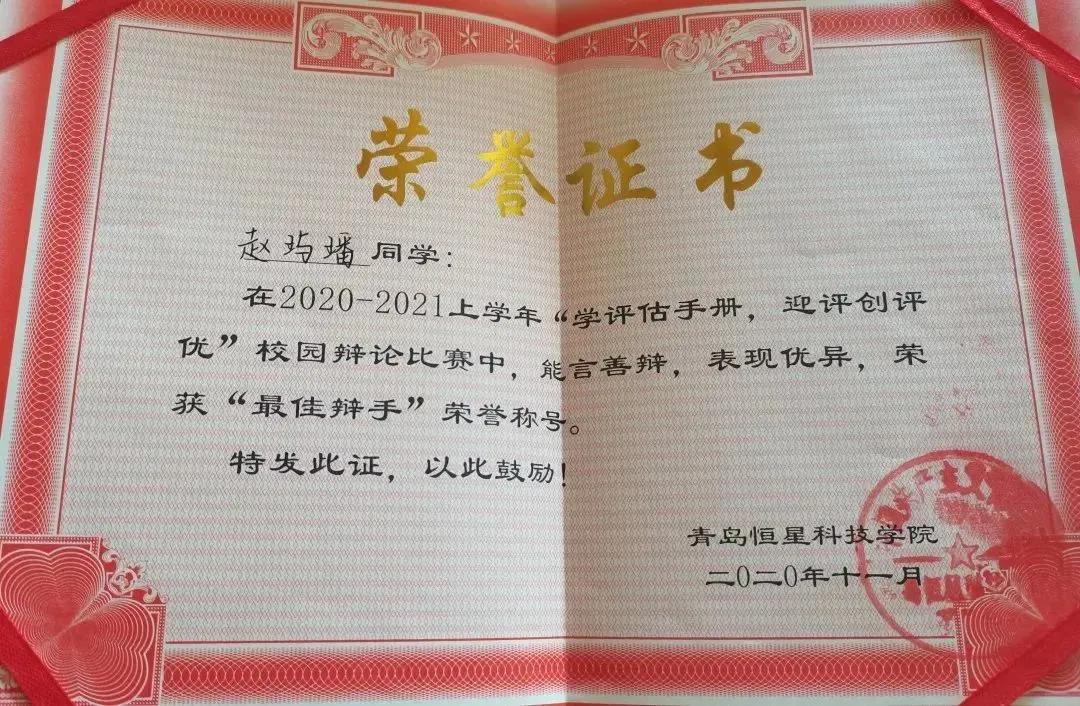 荣誉证书
赵玙璠同学：
在2020-2021上学年“学评估手册，迎评创评
优”校园辩论比赛中，能言善辩，表现优异，荣
获“最佳辩手”荣誉称号。
特发此证，以此鼓励！
青岛恒星科技学院
二〇二〇年十一月